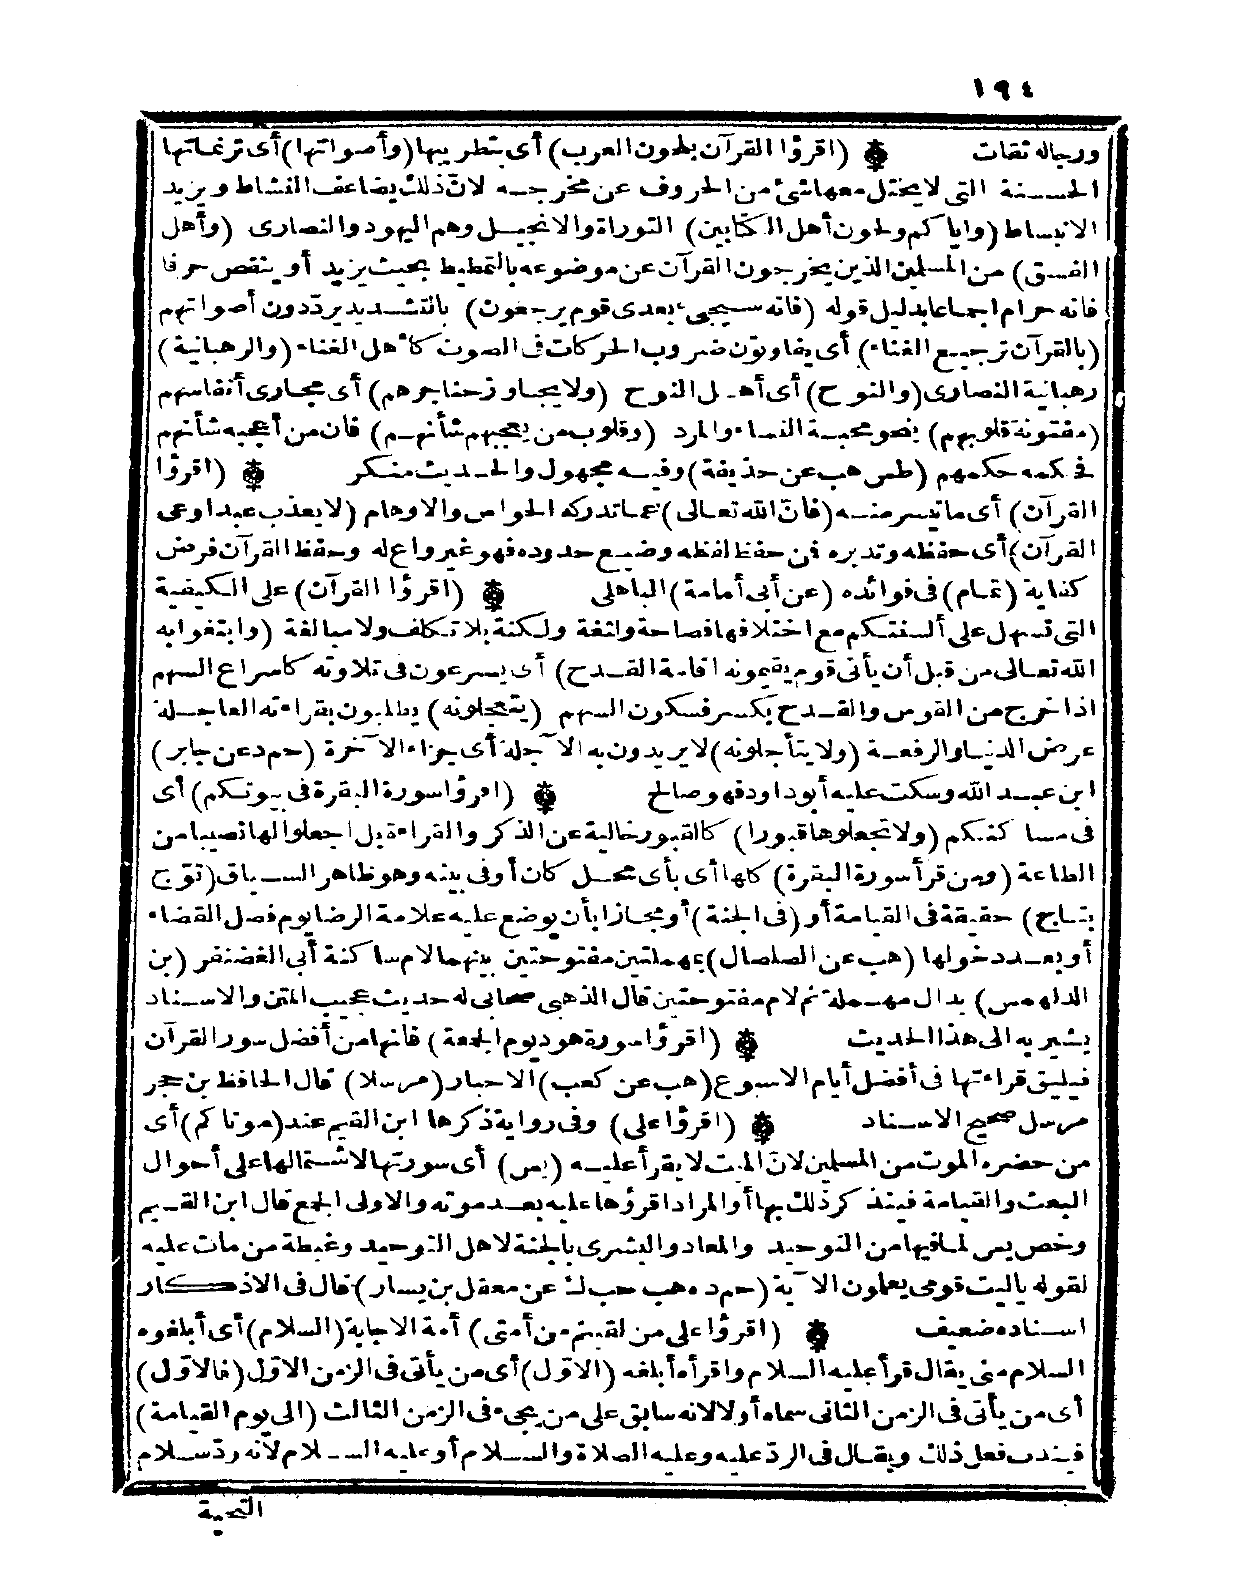 ١٩٤
ورجاله ثقات (اقرؤا القرآن بلحون العرب) أى بتطريبها (وأصواتها) أى ترنماتها
الحسنة التى لا يختل معها شئ من الحروف عن مخرجه لان ذلك يضاعف النشاط ويزيد
الانبساط (واياكم ولحون أهل الكتابين) التوراة والانجيل وهم اليهود والنصارى (وأهل
الفسق) من المسلمين الذين يخرجون القرآن عن موضوعه بالتمطيط بحيث يزيد أو ينقص حرفا
فانه حرام اجماعا بدليل قوله (فانه سيجىء بعدى قوم يرجعون) بالتشديد يرددون أصواتهم
(بالقرآن ترجيع الغناء) أى يفاوتون ضروب الحركات فى الصوت كأهل الغناء (والرهبانية)
رهبانية النصارى (والنوح) أى أهل النوح (ولا يجاوز حناجرهم) أى مجارى أنفاسهم
(مفتونة قلوبهم) بنحو محبة النساء والمرد (وقلوب من يعجبهم شأنهم) فان من أعجبه شأنهم
فحكمه حكمهم (طس هب عن حذيفة) وفيه مجهول والحديث منكر (اقرؤا
القرآن) أى ما تيسر منه (فان الله تعالى) عما تدركه الحواس والاوهام (لا يعذب عبدا وعى
القرآن) أى حفظه وتدبره فمن حفظ لفظه وضيع حدوده فهو غير واع له وحفظ القرآن فرض
كفاية (تمام) فى فوائده (عن أبى أمامة) الباهلى (اقرؤا القرآن) على الكيفية
التى تسهل على ألسنتكم مع اختلافها فصاحة ولثغة ولكنة بلا تكلف ولا مبالغة (وابتغوا به
الله تعالى من قبل أن يأتى قوم يقيمونه اقامة القدح) أى يسرعون فى تلاوته كاسراع السهم
اذا خرج من القوس والقدح بكسر فسكون السهم (يتعجلونه) يطلبون بقراءته العاجلة
عرض الدنيا والرفعة (ولا يتأجلونه) لا يريدون به الآجلة أى جزاء الآخرة (حم د عن جابر)
ابن عبد الله وسكت عليه أبو داود فهو صالح (اقرؤا سورة البقرة فى بيوتكم) أى
فى مساكنكم (ولا تجعلوها قبورا) كالقبور خالية عن الذكر والقراءة بل اجعلوا لها نصيبا من
الطاعة (ومن قرأ سورة البقرة) كلها أى بأى محل كان أو فى بيته وهو ظاهر السياق (توج
بتاج) حقيقة فى القيامة أو (فى الجنة) أو مجازا بأن يوضع عليه علامة الرضا يوم فصل القضاء
أو بعد دخولها (هب عن الصلصال) بمهملتين مفتوحتين بينهما لام ساكنة أبى الغضنفر (بن
الدلهمس) بدال مهملة ثم لام مفتوحتين قال الذهبى صحابى له حديث عجيب المتن والاسناد
يشير به الى هذا الحديث (اقرؤا سورة هود يوم الجمعة) فانها من أفضل سور القرآن
فيليق قراءتها فى أفضل أيام الاسبوع (هب عن كعب) الاحبار (مرسلا) قال الحافظ بن حجر
مرسل صحيح الاسناد (اقرؤا على) وفى رواية ذكرها ابن القيم عند (موتاكم) أى
من حضره الموت من المسلمين لان الميت لا يقرأ عليه (يس) أى سورتها لاشتمالها على أحوال
البعث والقيامة فيتذكر ذلك بها أو المراد اقرؤها عليه بعد موته والاولى الجمع قال ابن القيم
وخص يس لما فيها من التوحيد والمعاد والبشرى بالجنة لاهل التوحيد وغبطة من مات عليه
لقوله يا ليت قومى يعلمون الآية (حم د ه هب حب ك عن معقل بن يسار) قال فى الاذكار
اسناده ضعيف (اقرؤا على من لقيتم من أمتى) أمة الاجابة (السلام) أى أبلغوه
السلام منى يقال قرأ عليه السلام واقرأه أبلغه (الاول) أى من يأتى فى الزمن الاول (فالاول)
أى من يأتى فى الزمن الثانى سماه أولا لانه سابق على من يجىء فى الزمن الثالث (الى يوم القيامة)
فيندب فعل ذلك ويقال فى الرد عليه وعليه الصلاة والسلام أو عليه السلام لانه رد سلام
التحية